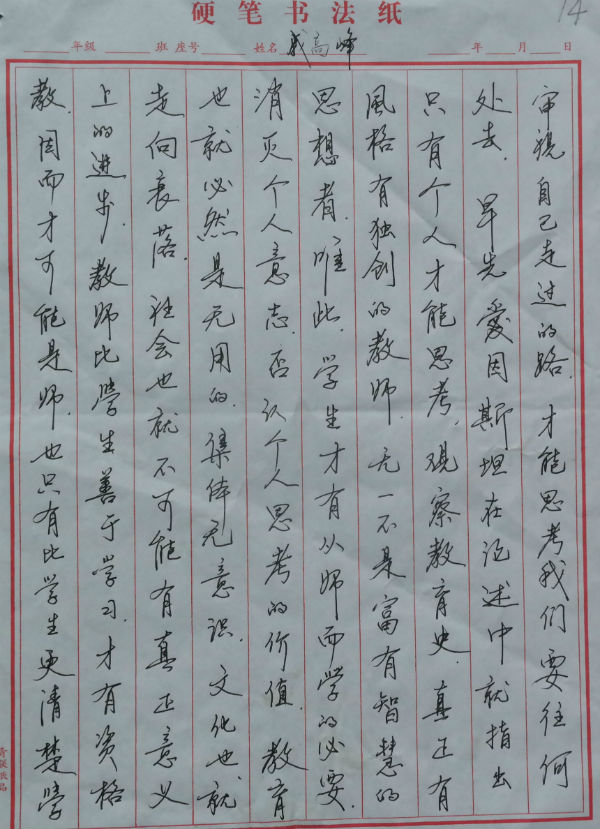 硬笔书法纸
14
年级 班 座号 姓名 戚高峰 年 月 日
审视自己走过的路.才能思考我们要往何
处去.早先爱因斯坦在论述中就指出
只有个人才能思考.观察教育史.真正有
风格有独创的教师.无一不是富有智慧的
思想者.唯此.学生才有从师而学的必要.
消灭个人意志.否认个人思考的价值.教育
也就必然是无用的.集体无意识.文化也就
走向衰落.社会也就不可能有真正意义
上的进步.教师比学生善于学习.才有资格
教.因而才可能是师.也只有比学生更清楚学